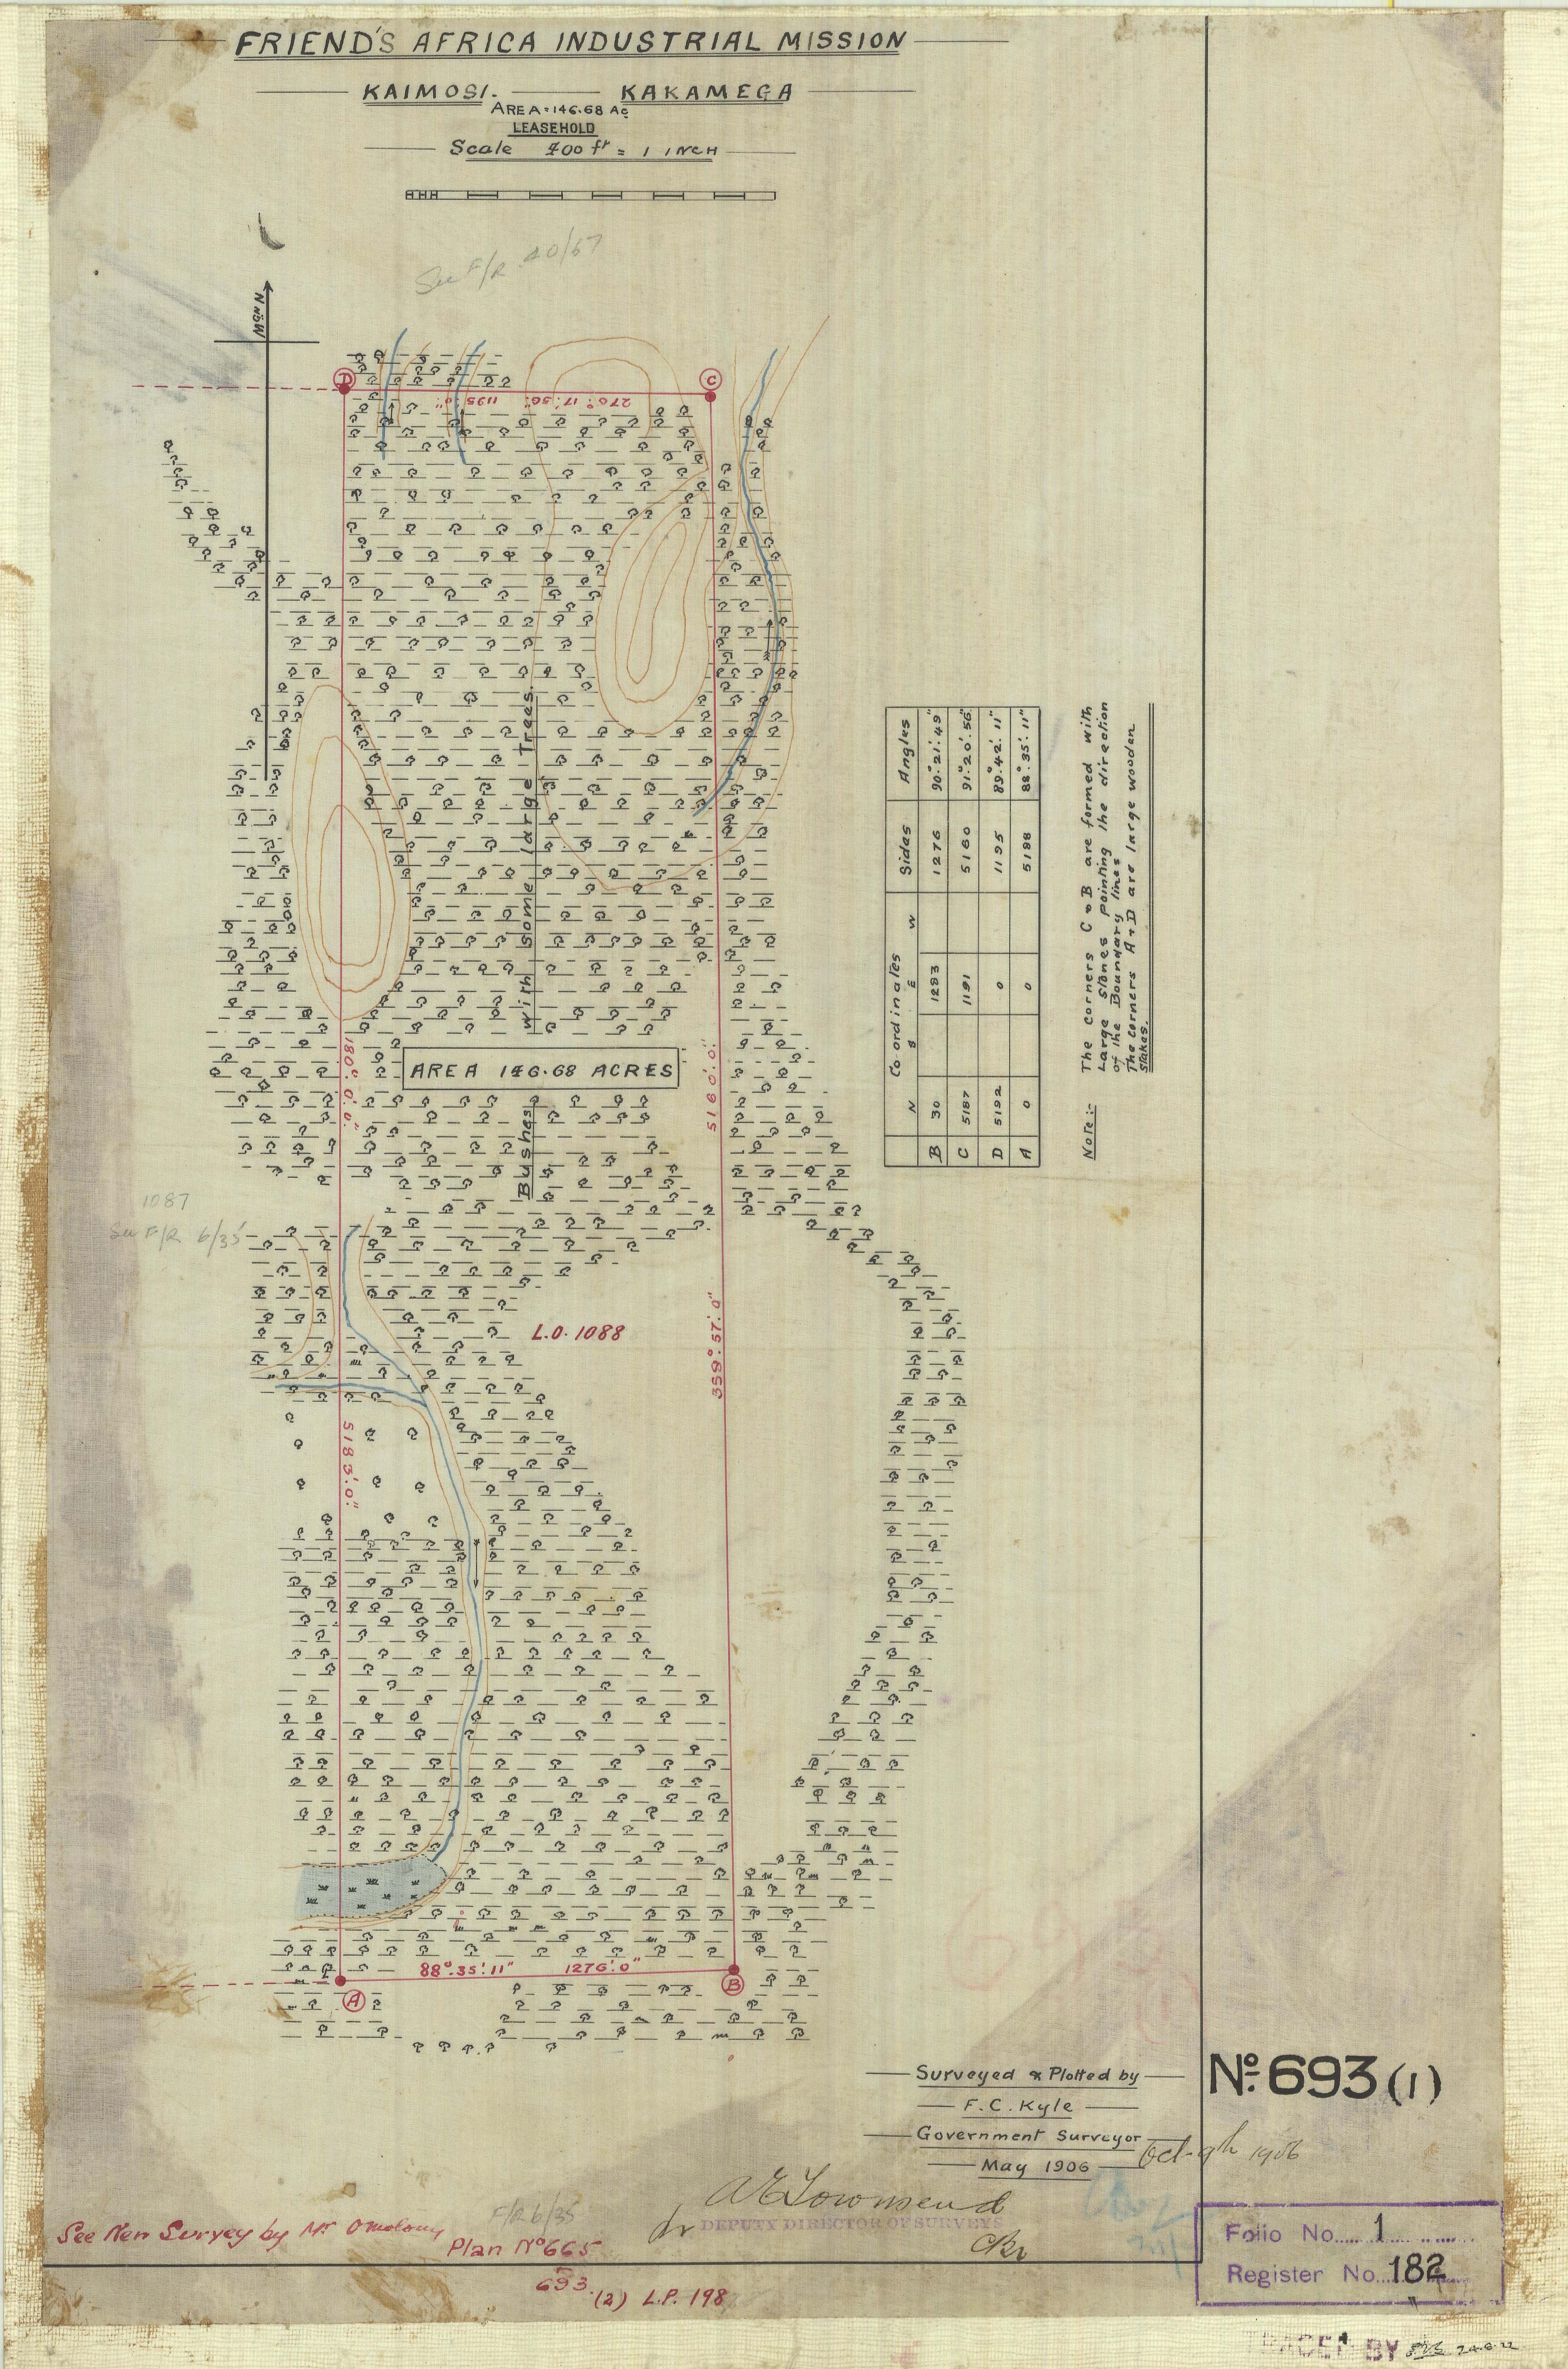 FRIEND'S AFRICA INDUSTRIAL MISSION
KAIMOSI. KAKAMEGA
AREA = 146.68 Ac
LEASEHOLD
Scale 400 ft = 1 INCH
See F/R 40/67
N
D
C
270° 17' 56" 1195' 0"
Bushes with some large Trees.
180° 0' 0"
AREA 146.68 ACRES
5160' 0"
1087
See F/R 6/35
L.O. 1088
359° 57' 0"
5183' 0"
88° 35' 11" 1276' 0"
A
B
Co ordinates Sides Angles
N S E W
B 30 1293 1276 90° 21' 49"
C 5187 1191 5160 91° 20' 56"
D 5192 0 1195 89° 42' 11"
A 0 0 5198 88° 35' 11"
Note:- The corners C & B are formed with
Large stones pointing the direction
of the Boundary lines
The corners A & D are large wooden
stakes.
Surveyed & Plotted by
F. C. Kyle
Government Surveyor
May 1906
Oct 9th 1906
No. 693 (1)
AETownsend
DEPUTY DIRECTOR OF SURVEYS
See New Survey by Mr
F/R 6/35
Plan No 665
693
(2) L.P. 198
Folio No. 1
Register No. 182
TRACED BY